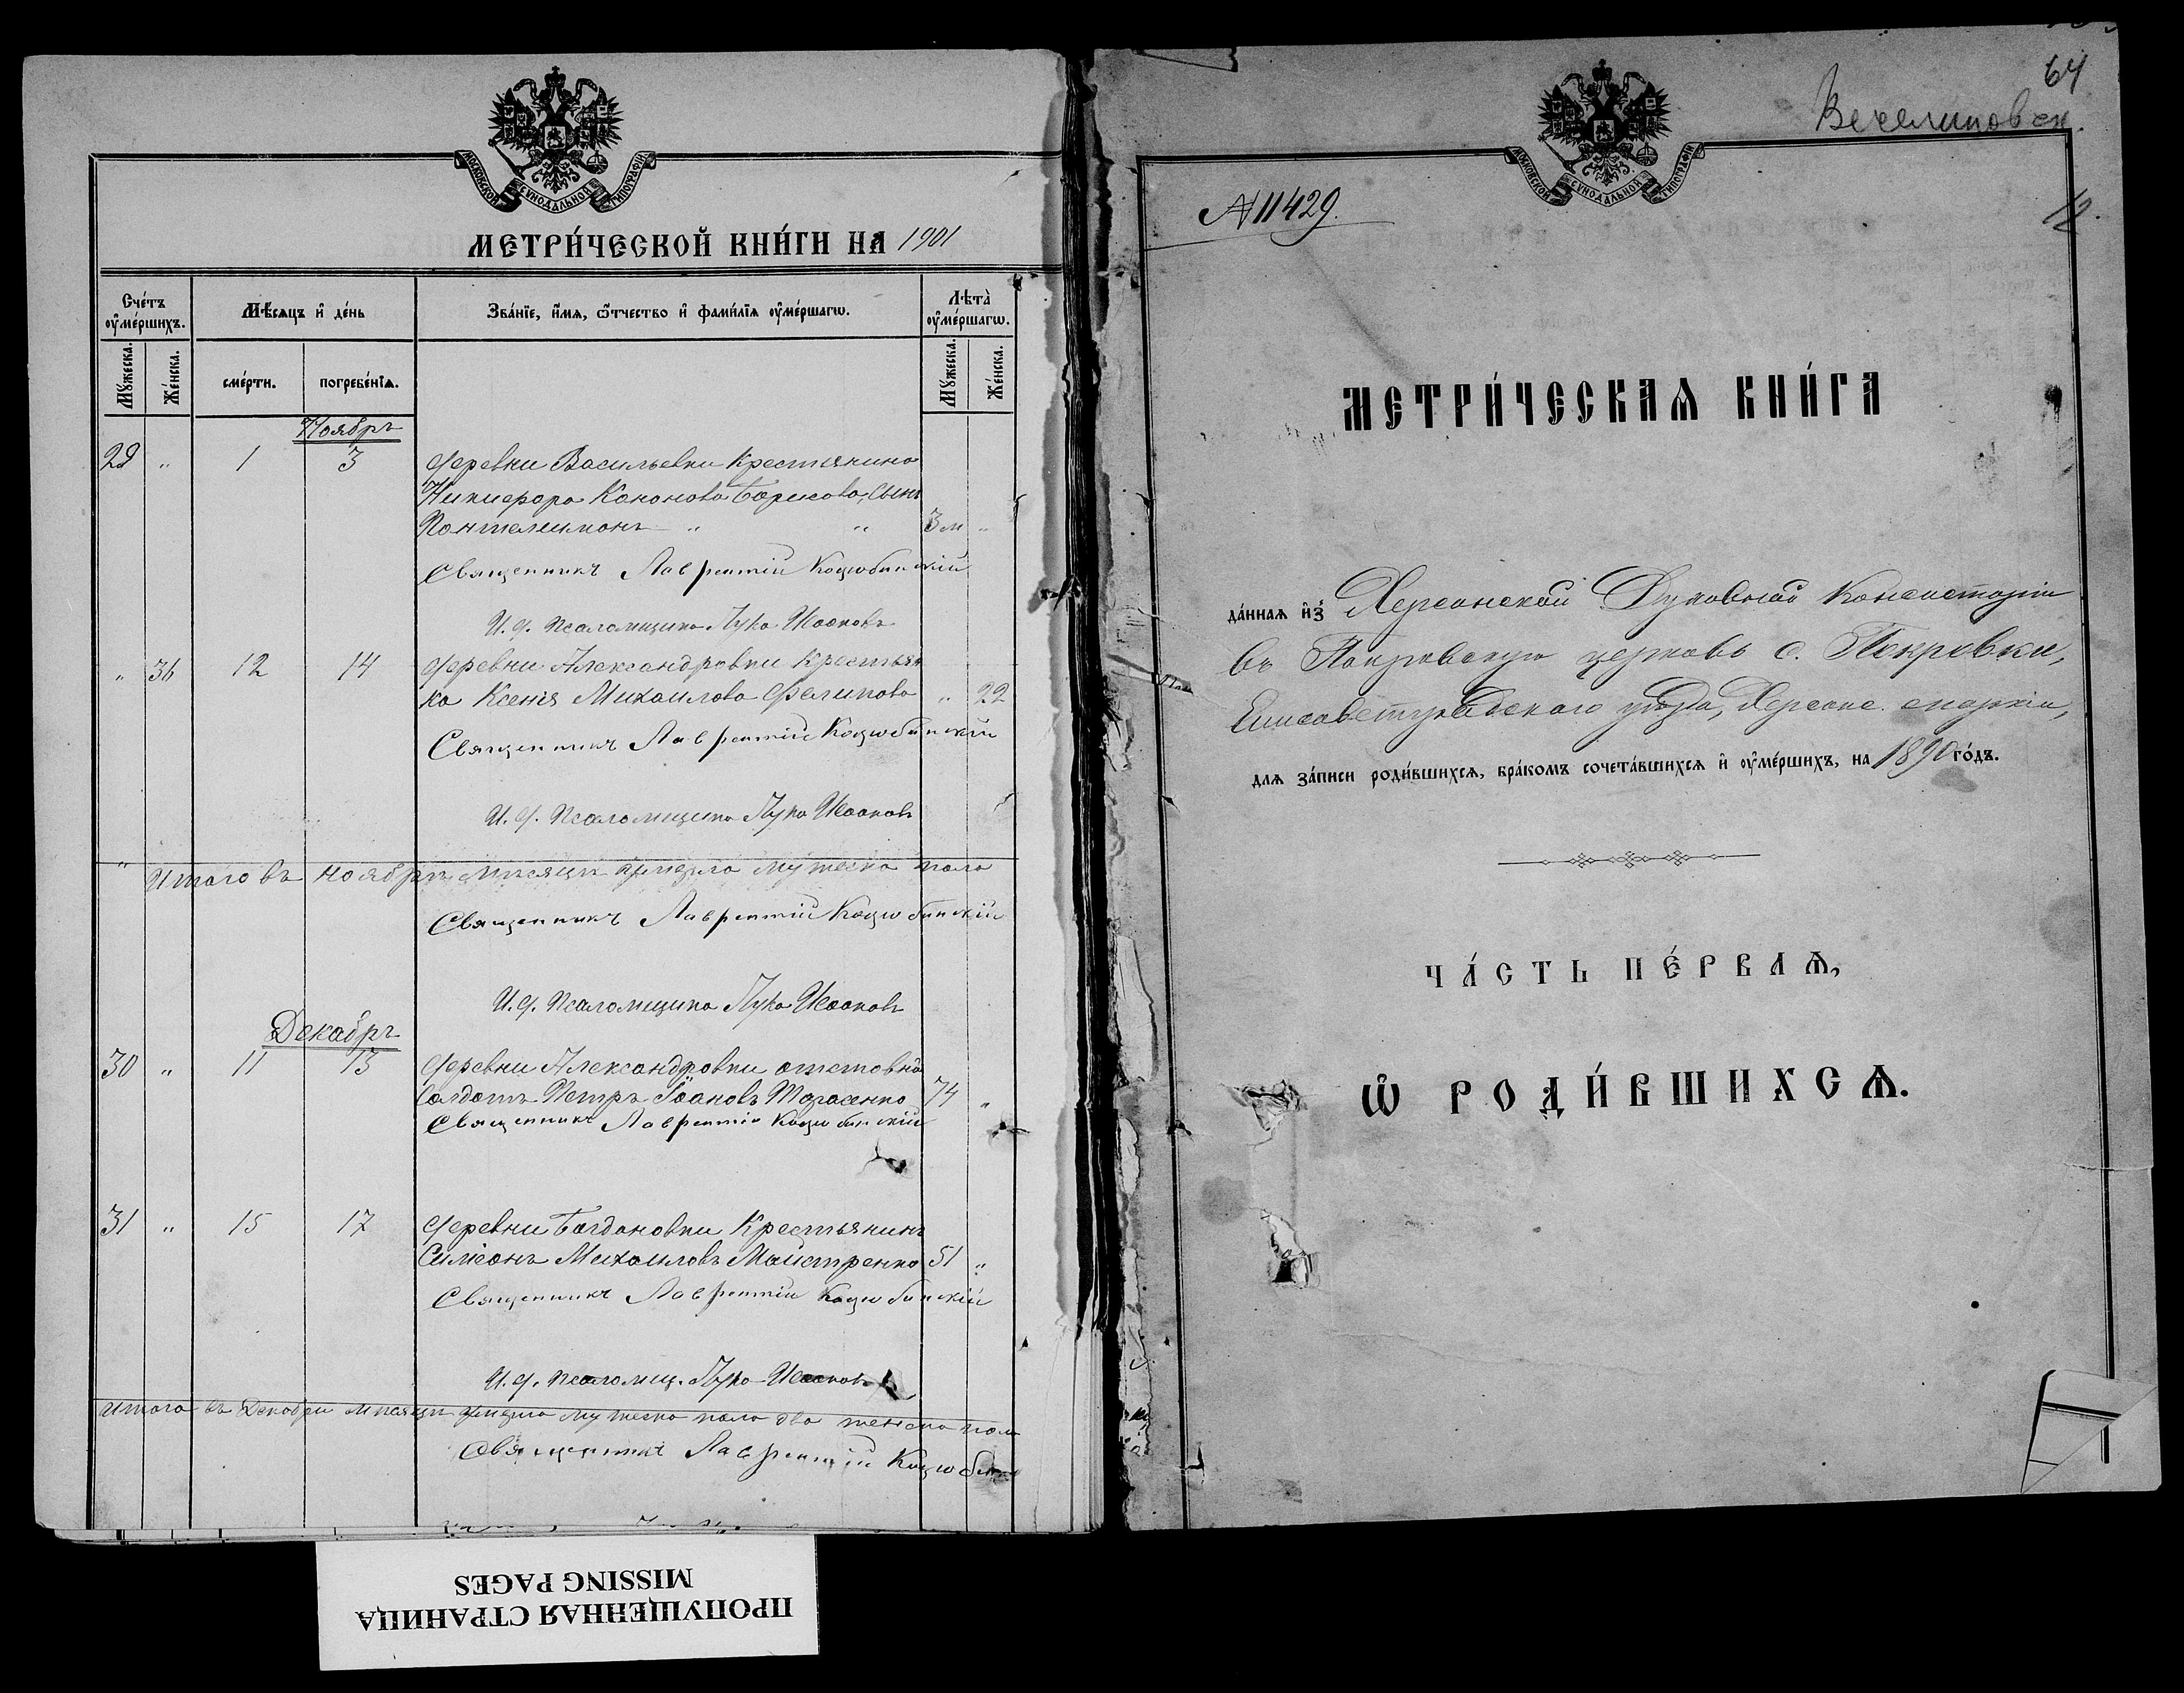 МОСКОВСКОЙ СѴНОДАЛЬНОЙ ТИПОГРАФІИ
МЕТРИ́ЧЕСКОЙ КНИ́ГИ НА 1901
Сче́тъ ᲂу҆ме́ршихъ.
Мѣ́сяцъ и҆ де́нь
Зва́нїе, и҆́мѧ, ѻ҆́тчество и҆ фами́лїѧ ᲂу҆ме́ршагѡ.
Лѣта̀ ᲂу҆ме́ршагѡ.
Мꙋ́жеска.
Же́нска.
сме́рти.
погребе́нїѧ.
Мꙋ́жеска.
Же́нска.
Ноябрь
29 „ 1 3 деревни Васильевки крестьянина
Никифора Кононова Борисова, сынъ
Пантелеимонъ „ „ 3 м „
Священникъ Лаврентій Коцюбинскій
И. д. псаломщика Лука
„ 36 12 14 деревни Александровки крестьян
ка Ксенія Михаилова Филипова „ 22
Священникъ Лаврентій Коцюбинскій
И. д. псаломщика Лука
Итого въ ноябрѣ мѣсяцѣ умерло мужеска пола
Священникъ Лаврентій Коцюбинскій
И. д. псаломщика Лука
Декабрь
30 „ 11 13 деревни Александровки отставной
солдатъ Петръ Іоановъ Тарасенко 74 „
Священникъ Лаврентій Коцюбинскій
31 „ 15 17 деревни Богдановки крестьянинъ
Симеонъ Михаиловъ Майстренко 51 „
Священникъ Лаврентій Коцюбинскій
И. д. псаломщ. Лука
Итого въ Декабри мѣсяцѣ умерло мужеска пола два женска пола
Священникъ Лаврентій
ПРОПУЩЕННАЯ СТРАНИЦА
MISSING PAGES
64
МОСКОВСКОЙ СѴНОДАЛЬНОЙ ТИПОГРАФІИ
№ 11429.
МЕТРИ́ЧЕСКАѦ КНИ́ГА
да́ннаѧ и҆з̾ Херсонской Духовной Консисторіи
въ Покровскую церковь с. Покровки,
Елисаветградскаго уѣзда, Херсонс. епархіи,
длѧ за́писи роди́вшихсѧ, бра́комъ сочета́вшихсѧ и҆ ᲂу҆ме́ршихъ, на 1890 го́дъ.
ЧА́СТЬ ПЕ́РВАѦ,
Ѡ҆ РОДИ́ВШИХСѦ.